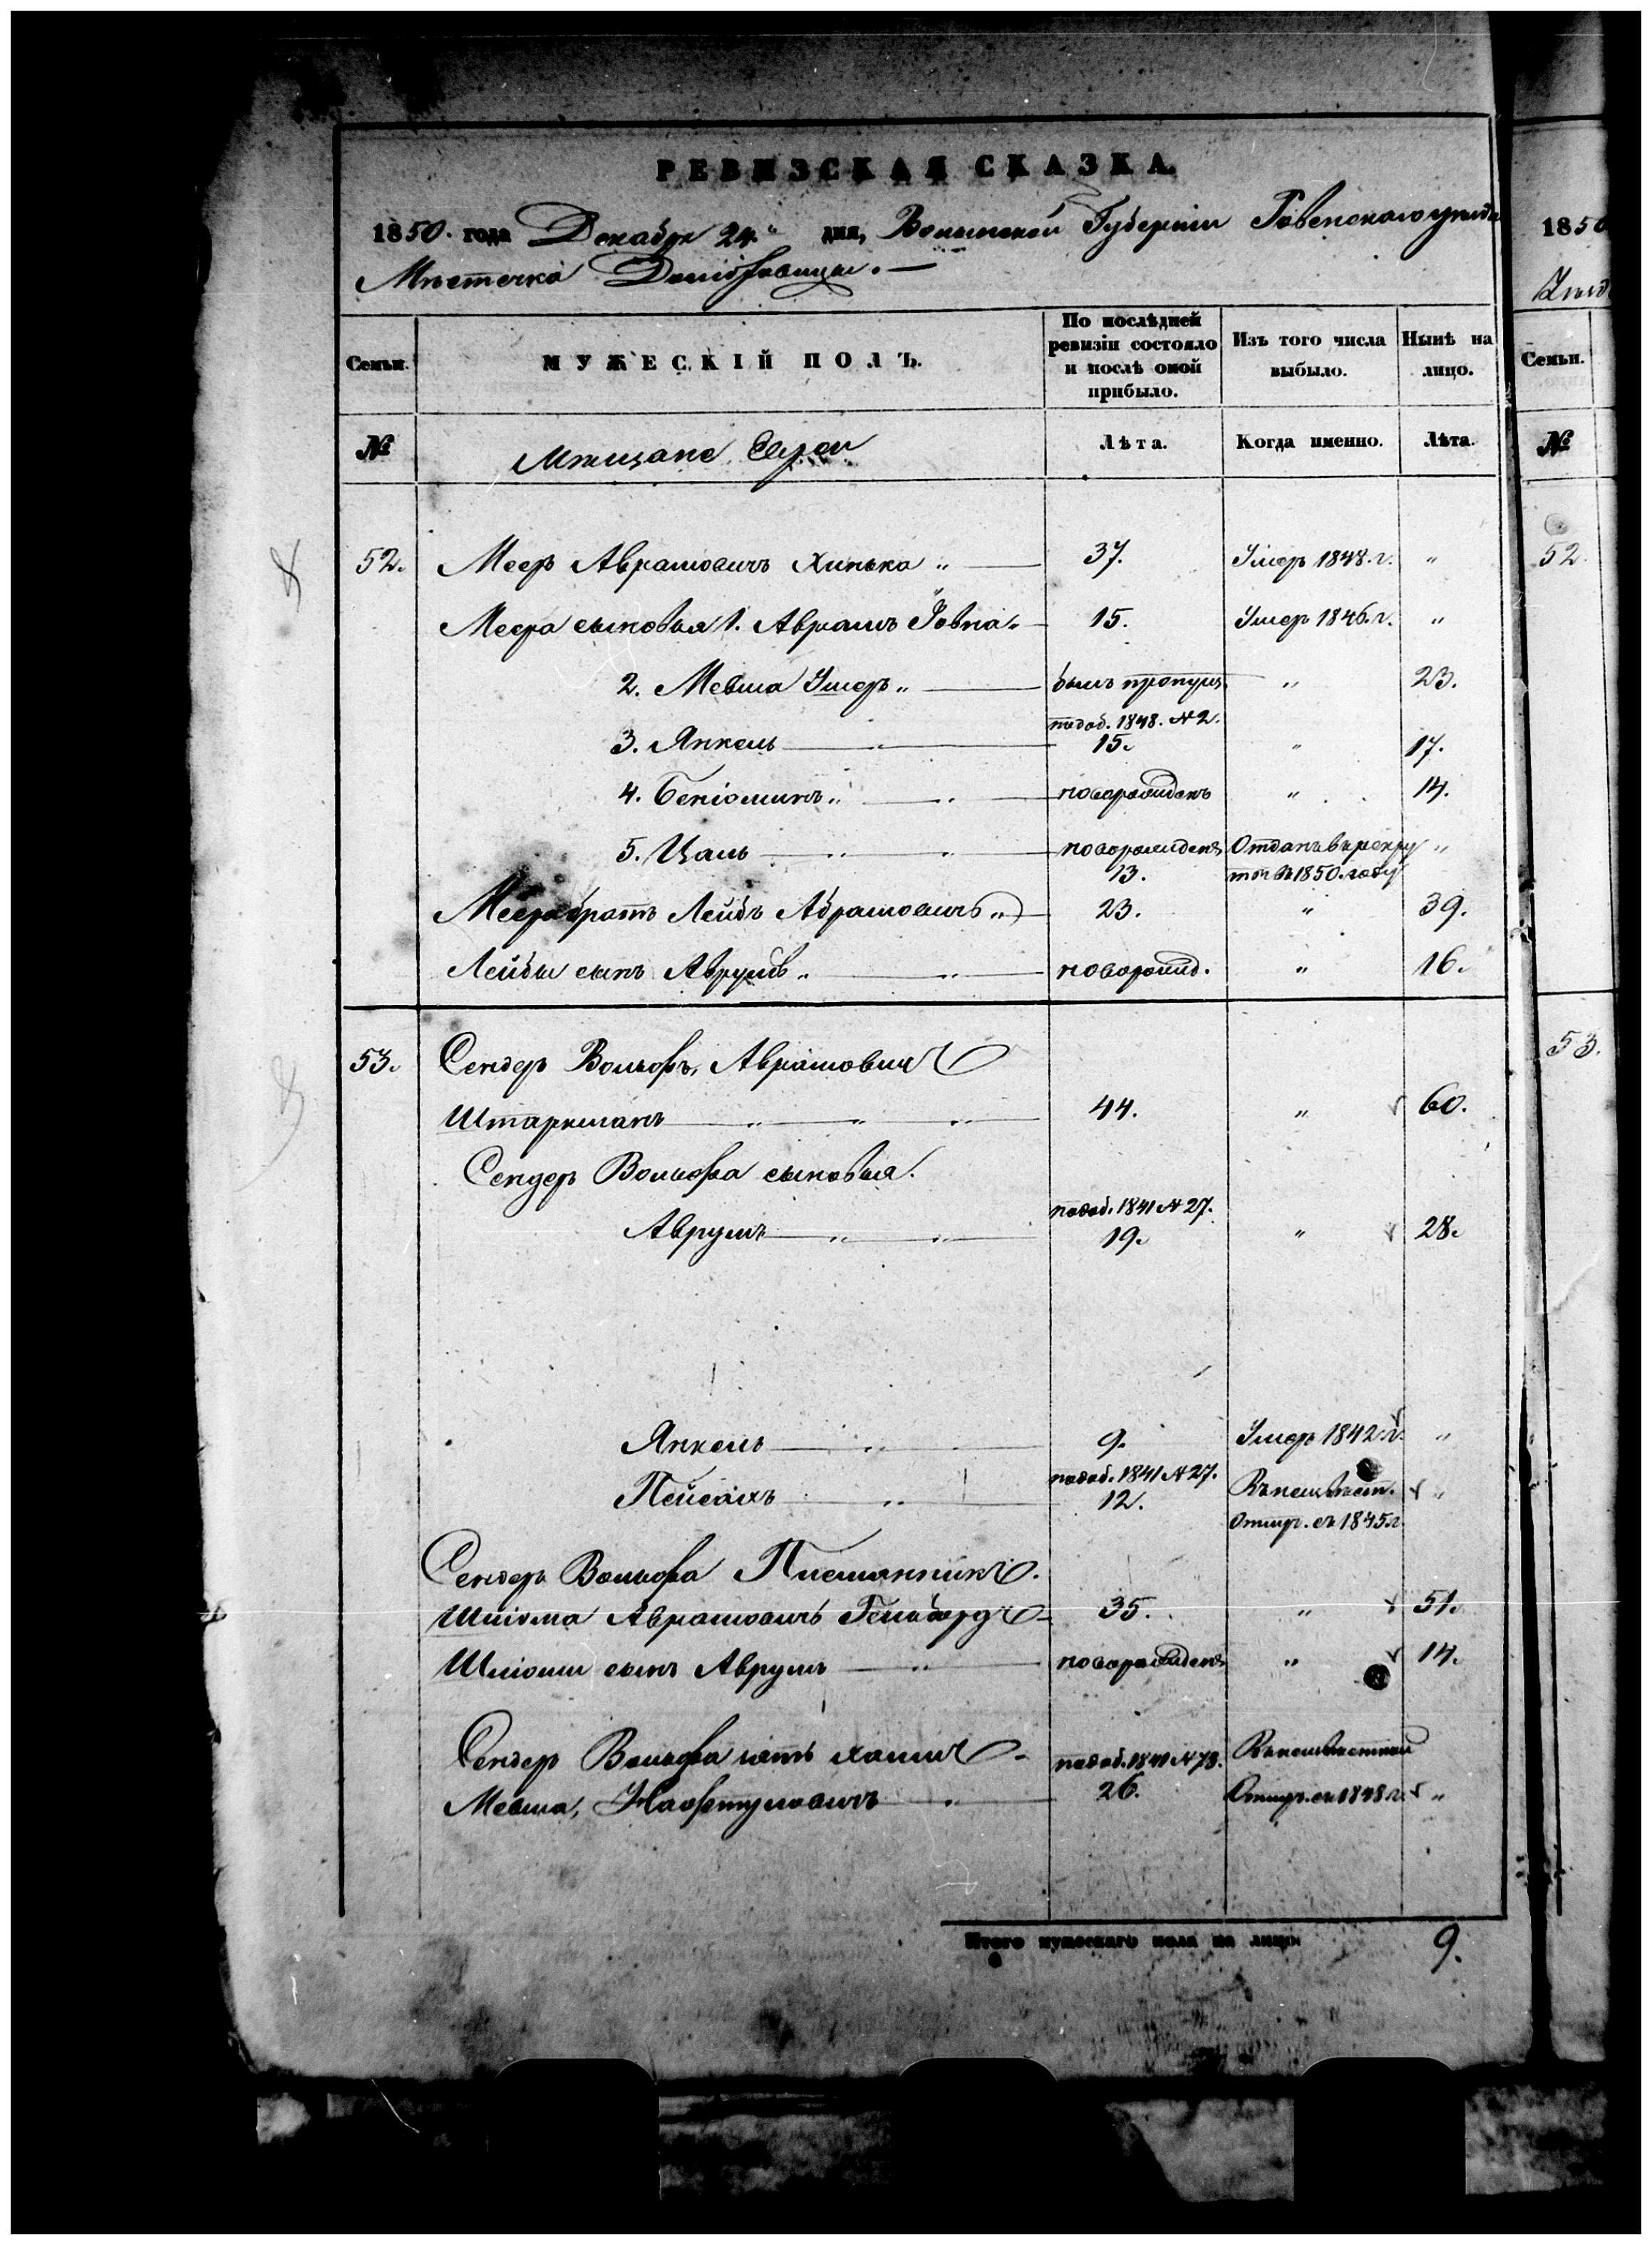 РЕВИЗСКАЯ СКАЗКА.
1850. года Декабря 24. дня, Волынской Губернiи Ровенского уезда
Мѣстечка Домбровицы. —
Семьи. МУЖЕСКIЙ ПОЛЪ. По послѣдней ревизiи состояло и послѣ оной прибыло. Изъ того числа выбыло. Нынѣ на лицо.
№ Мѣщане Евреи Лѣта. Когда именно. Лѣта.
52. Меер Аврамовичъ Хинька „ 37. Умеръ 1848. г. „
Меера сыновья 1. Аврамъ Ровна „ 15. Умеръ 1846. г. „
2. Мевша Умеръ „ былъ пропущ. „ 23.
подоб. 1848. № 2.
3. Янкель „ 15. „ 17.
4. Бенiоминъ „ новорожденъ „ 14.
5. Цаль „ новорожденъ Отданъ въ рекру „
13. ты въ 1850 году
Меера братъ Лейбъ Абрамовичъ „ 23. „ 39.
Лейбы сынъ Аврумъ „ новорожд. „ 16.
53. Сендеръ Вольфъ, Аврамовичъ
Штаркманъ „ 44. „ 60.
Сендеръ Вольфа сыновья.
подоб. 1841 № 27.
Аврумъ „ 19. „ 28.
Янкель „ 9. Умеръ 1842. г. „
подоб. 1841 № 27.
Пейсахъ „ 12. Въ неизвѣст. „
Отлуч. съ 1845 г.
Сендеръ Вольфа Племянникъ.
Шлiома Аврамовичъ 35. „ 51.
Шлiомы сынъ Аврумъ „ новорожденъ „ 14.
Сендеръ Вольфа зять подоб. 1841 № 78. Въ неизвѣстной
Мевша, Нафтуловичъ „ 26. Отлуч. съ 1848 г. „
Итого мужескаго пола на лицо 9.
1850
Семьи.
№
52.
53.